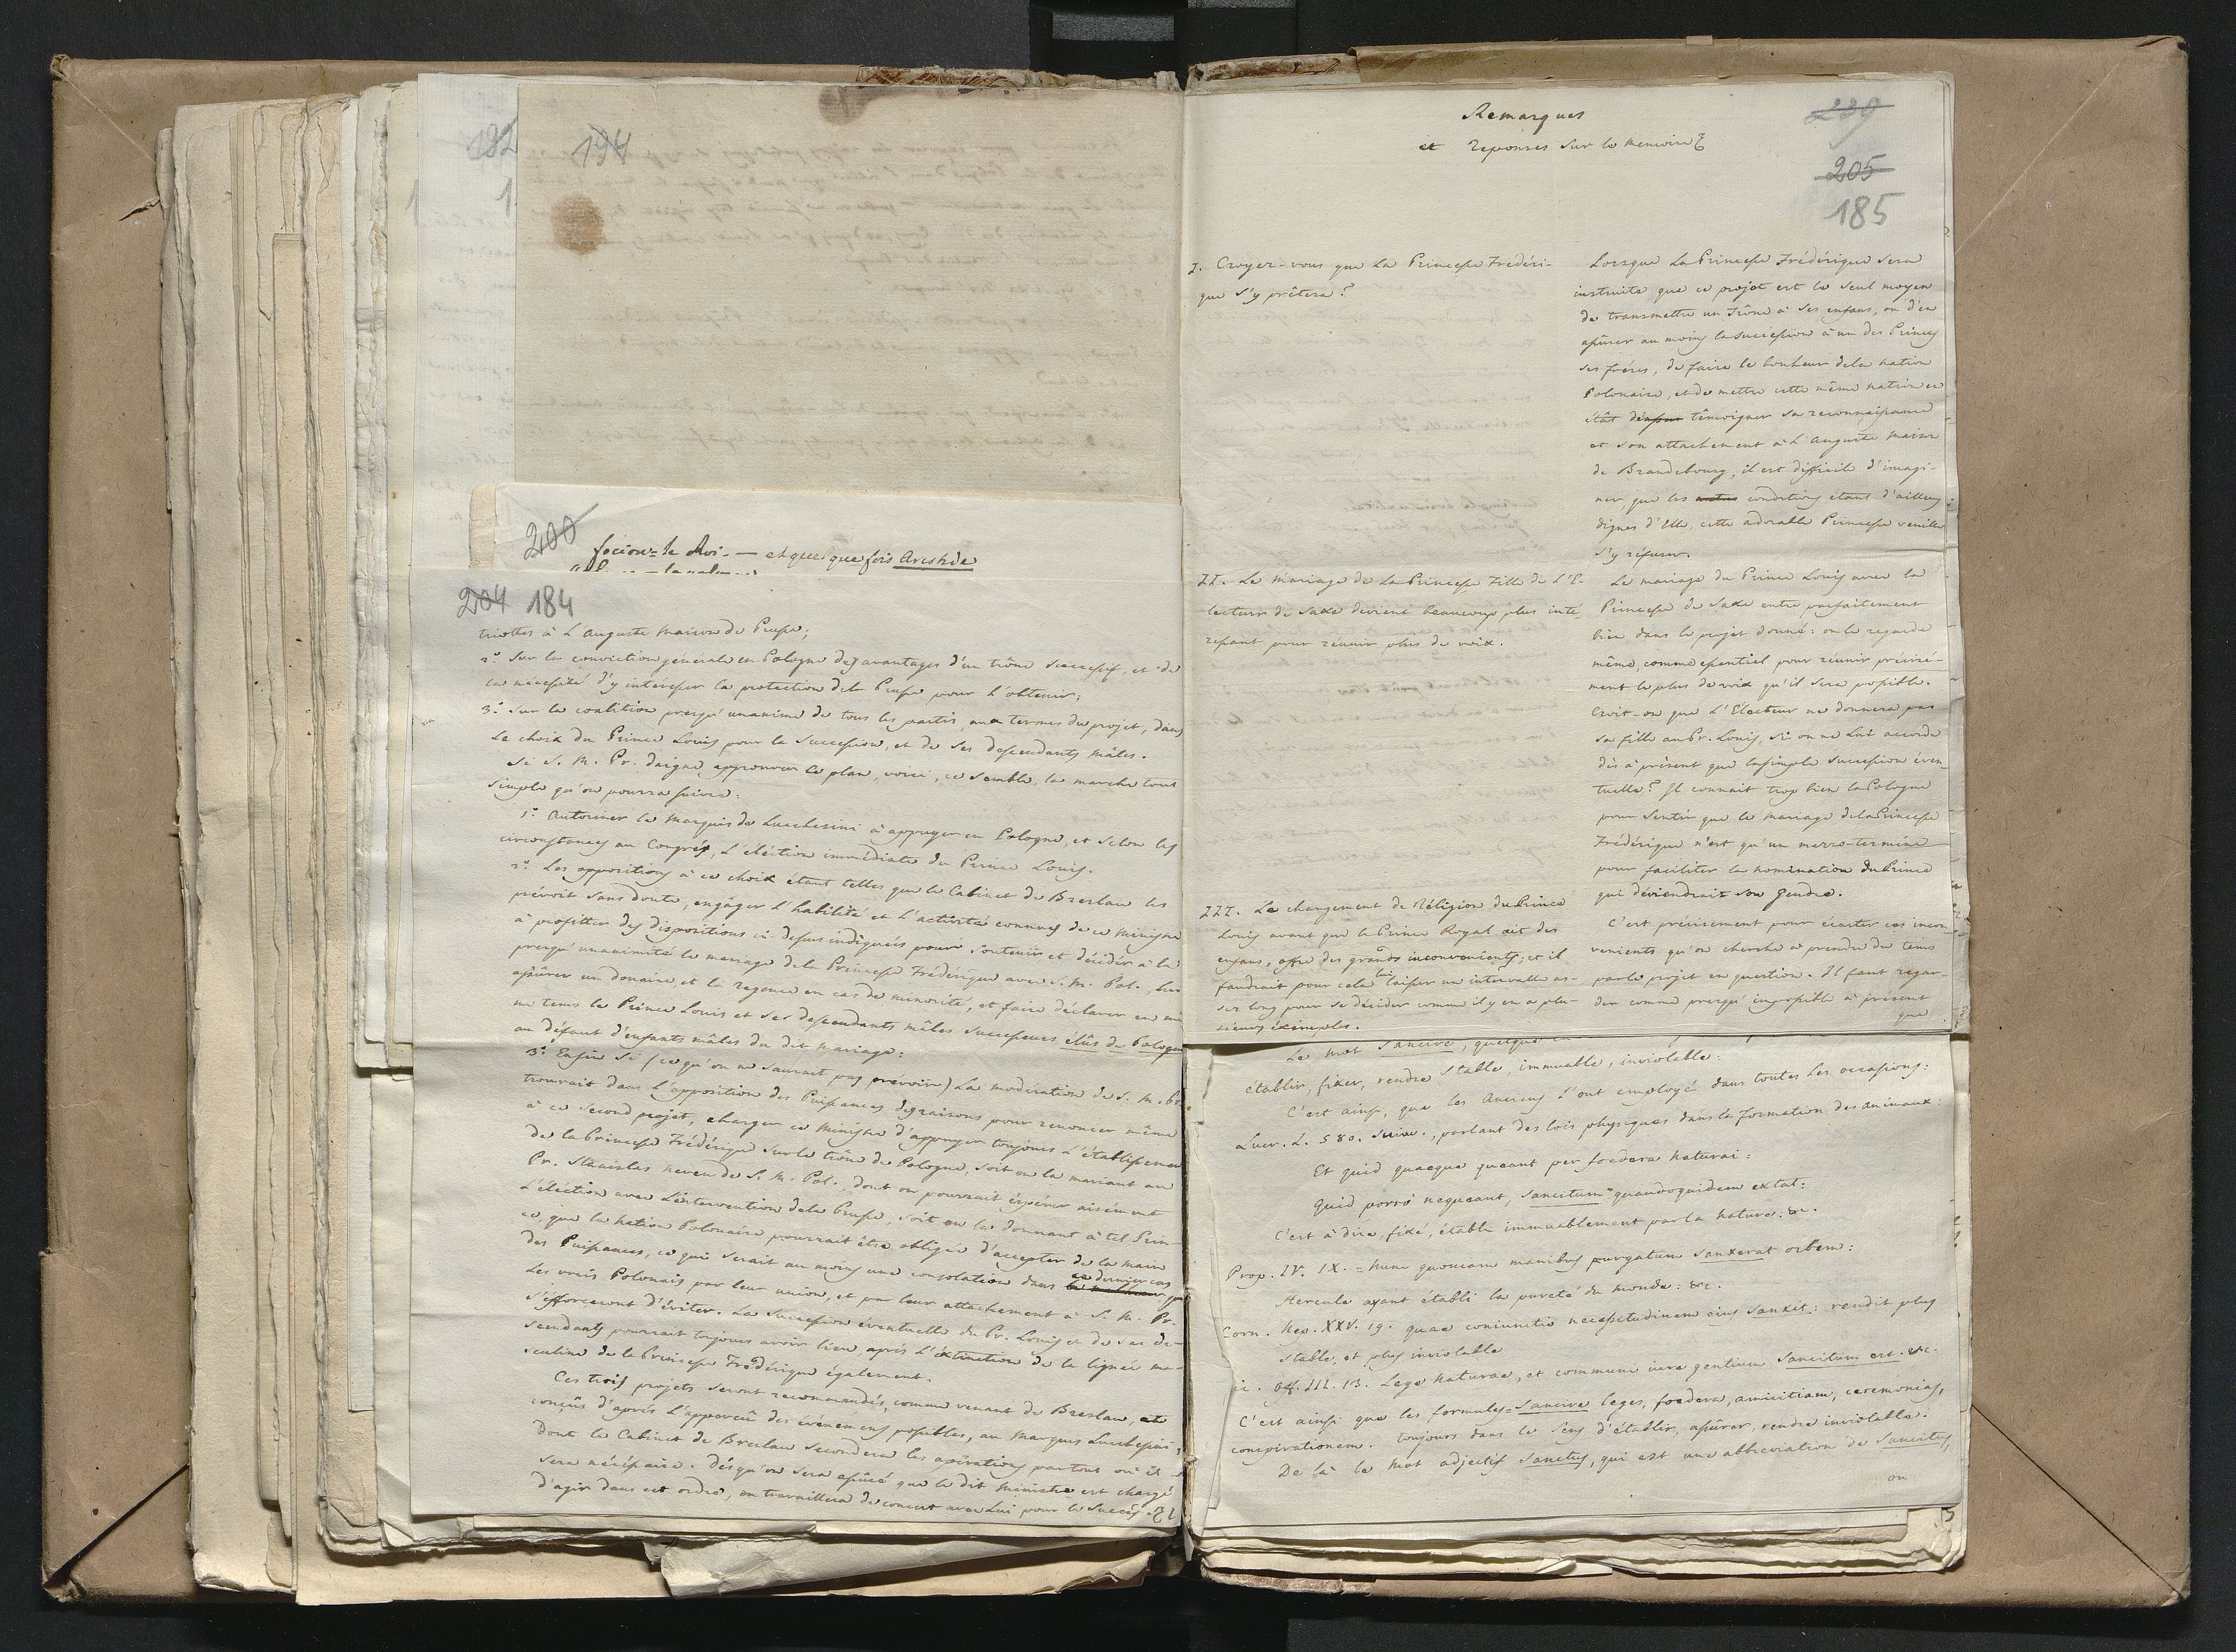 192
194
200
focion = le Roi. — et que que fois Aristide
204 184
triottes à L'Auguste Maison de Prusse;
2.° Sur la conviction generale en Pologne des avantages d'un trône successif, et de
la nécessité d'y intéresser la protection de la Prusse pour l'obtenir;
3.° Sur la coalition presqu'unanime de tous les partis, aux termes du projet, dans
Le choix du Prince Louis pour la Succession, et de Ses descendants mâles.
Si S. M. Pr. daigne approuver ce plan, voici, ce semble, la marche tout
simple qu'on pourra suivre.
1.° Autoriser le Marquis de Lucchesini à appuyer en Pologne, et selon les
circonstances au Congrès, L'eléction immédiate du Prince Louis.
2.° Les oppositions à ce choix étant telles que le Cabinet de Breslau les
prévoit sans doute, engâger L'habilité et L'activité connues de ce Ministre
à profitter des dispositions ci-dessus indiquées pour soutenir et décider à la
presqu'unanimité le mariage de la Princesse Fréderique avec S. M. Pol., lui
assûrer un douaire, et la regence en cas de minorité, et faire déclarer en mê
me tems le Prince Louis et Ses descendants mâles successeurs élûs de Pologne
au défaut d'enfants mâles du dit mariage:
3.° Enfin Si (ce qu'on ne saurait pas prévoir) La moderation de S. M. Pr.
trouvait dans L'opposition des Puissances des raisons pour renoncer même
à ce second projet, charger ce Ministre d'appuyer toujours L'établissement
de la Princesse Frédérique sur le trône de Pologne, soit en la mariant au
Pr. Stanislas neveu de S. M. Pol., dont on pourrait éspérer aisement
L'éléction avec L'intervention de la Prusse, soit en la donnant à tel Prin-
ce, que la nation Polonaise pourrait être obligée d'accepter de la main
des Puissances, ce qui serait au moins une consolation dans ce dernier cas que
Les vrais Polonais par leur union, et par leur attachement à S. M. Pr.
s'efforceront d'éviter. La Succession éventuelle du Pr. Louis et de Ses de-
scendants pourrait toujours avoir lieu après L'éxtinction de la lignée ma-
sculine de la Princesse Frédérique également.
Ces trois projets seront recommandés, comme venant de Breslau, et
conçus d'après L'apperceû des événemens possibles, au Marquis Lucchesini,
Dont le Cabinet de Breslau secondera les opérations partout où il
sera nécéssaire. Dès qu'on sera assûré que le dit Ministre est chargé
d'agir dans cet ordre, on travaillera de concert avec Lui pour le Succès.
Remarques
et reponses sur le memoire
239
205
185
I. Croyez-vous que La Princesse Fréderi-
que s'y prêtera?
Lorsque La Princesse Frédérique sera
instruite que ce projet est le seul moyen
de transmettre un Trône à ses enfans, ou d'en
assûrer au moins la succession à un des Princes
ses frères, de faire le bonheur de la nation
Polonaise, et de mettre cette même nation en
état de témoigner sa reconnaissance
et son attachement à L'Auguste Maison
de Brandebourg, il est difficile d'imagi-
ner, que les conditions étant d'ailleurs
dignes d'Elle, cette adorable Princesse veuille
s'y réfuser.
II. Le mariage de la Princesse Fille de L'E-
lecteur de Saxe devient beaucoup plus inte-
ressant pour réunir plus de voix.
Le mariage du Prince Louis avec la
Princesse de Saxe entre parfaitement
bien dans le projet donné: on le regarde
même, comme essentiel pour réunir précisé-
ment le plus de voix qu'il sera possible.
Croit-on que L'Electeur ne donnera pas
sa fille au Pr. Louis, si on ne Lui accorde
dès à présent que la simple succession éven-
tuelle? Il connait trop bien la Pologne
pour sentir que le mariage de la Princesse
Frédérique n'est qu'un mezzo-termine
pour faciliter la nomination du Prince
qui déviendrait son Gendre.
III. Le changement de Réligion du Prince
Louis avant que le Prince Royal ait des
enfans, offre des grands inconvenients; et il
faudrait pour cela lui laisser un intervalle as-
sez long pour se décider comme il y en a plu-
sieurs éxemples.
C'est précisement pour écarter ces incon-
venients qu'on cherche à prendre du tems
par le projet en question. Il faut regar-
der comme presqu'impossible à présent
que
Le mot Sancire, quelque
établir, fixer, rendre stable, immuable, inviolable:
C'est ainsi, que les Anciens l'ont employé dans toutes les occasions:
Lucr. L. 580. suiv., parlant des lois physiques dans la formation des animaux:
Et quid quaeque queant per foedera naturai:
Quid porro nequeant, sancitum quandoquidem extat:
C'est à dire, fixé, établi immuablement par la nature: &c.
Prop. IV. IX. = Hunc quoniam manibus purgatum sanxerat orbem:
Hercule ayant établi la pureté du monde: &c.
Corn. Nep. XXV. 19. quae coniunctio necessitudinem eius Sanxit: rendit plus
stable, et plus inviolable
ic. Off. III. 13. Lege naturae, et communi iure gentium Sancitum est. &c.
C'est ainsi que les formules = Sancire leges, foedera, amicitiam, ceremonias,
conspirationem. toujours dans le sens d'établir, assûrer, rendre inviolable.
De là le mot adjectif Sanctus, qui est une abbreviation de Sancitus,
ou